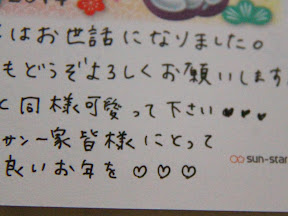 2014
はお世話になりました。
もどうぞよろしくお願いします
と同様可愛って下さい♥♥♥
サン一家皆様にとって
良いお年を♡♡♡
sun-star